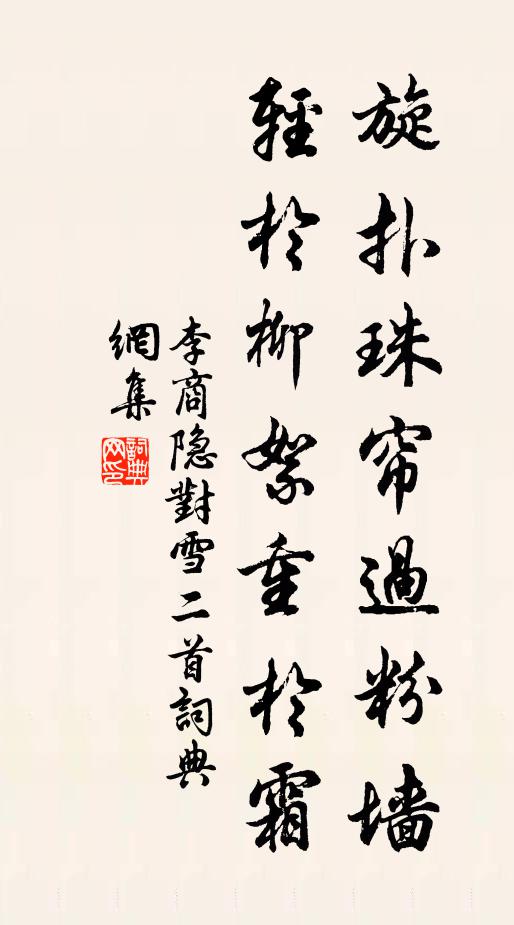 旋扑珠帘過粉墙
輕於柳絮重於霜
李商隐對雪二首詞典
網集
詞典網印